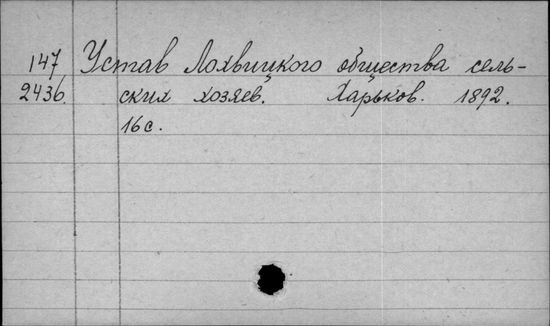 147 Устав Лохвицкого общества сель-
2436. ских хозяев. Харьков. 1892.
16 с.